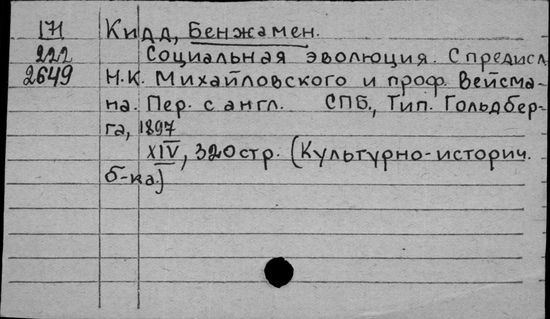 171 Кидд, Бенжамен.
222 Социальная эволюция. С предисл.
2649 Н.К. Михайловского и проф. Вейсма-
на. Пер. с англ. СПБ., Тип. Гольдбер-
га, 1897
XIV, 320 стр. (Культурно-историч.
б-ка.)